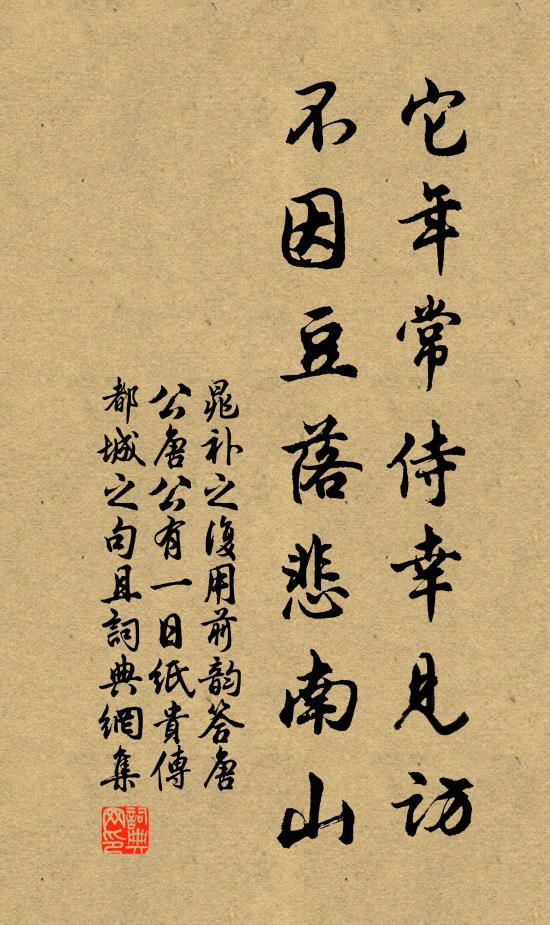 它年常侍幸見訪
不因豆落悲南山
晁补之復用前韵答唐
公唐公有一日紙貴傳
都城之句且詞典網集
詞典网印